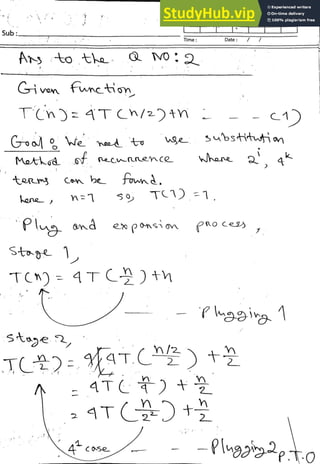 StudyHub.vip
Experienced writers
On-time delivery
Any plagiarism free
Sub :
Time : Date : / /
Ans to the Q NO : 2
Given function,
T(n) = 4T(n/2)+n - - - (1)
Goal : We need to use substitution
Method of recurrence where 2^i, 4^k
terms can be found.
here, n=1 so, T(1) = 1.
Plug and expansion process,
Stage 1,
T(n) = 4T(n/2)+n
- - Plugging 1
Stage 2,
T(n/2) = 4T((n/2)/2) + n/2
= 4T(n/4) + n/2
= 4T(n/2^2) + n/2
4^1 case - - - Plugging 2
P.T.O